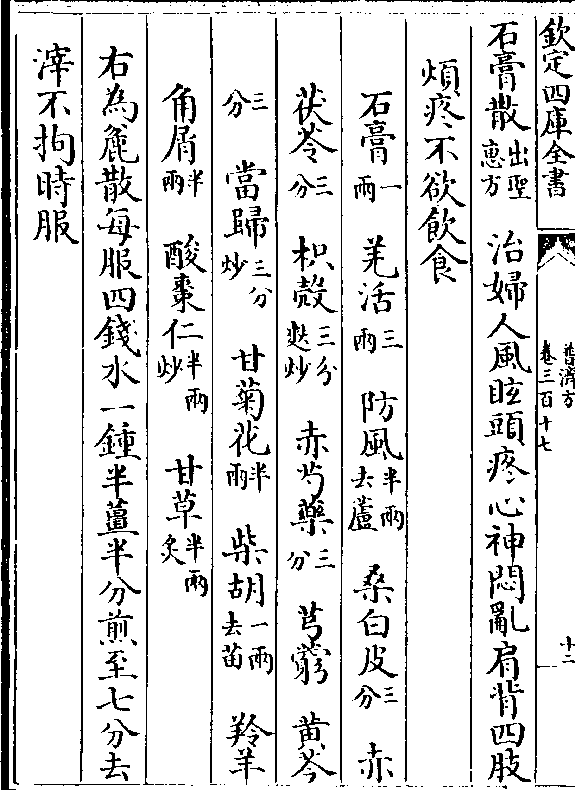 欽定四庫全書
普濟方
卷三百十七
十二
石膏散出聖惠方 治婦人風眩頭疼心神悶亂肩背四肢
煩疼不欲飲食
石膏一兩 羌活三兩 防風半兩去蘆 桑白皮三分 赤
茯苓三分 枳殼三分麩炒 赤芍藥三分 芎藭 黄芩
三分 當歸三分炒 甘菊花半兩 柴胡一兩去苗 羚羊
角屑半兩 酸棗仁半兩炒 甘草半兩炙
右為麄散每服四錢水一鍾半薑半分煎至七分去
滓不拘時服